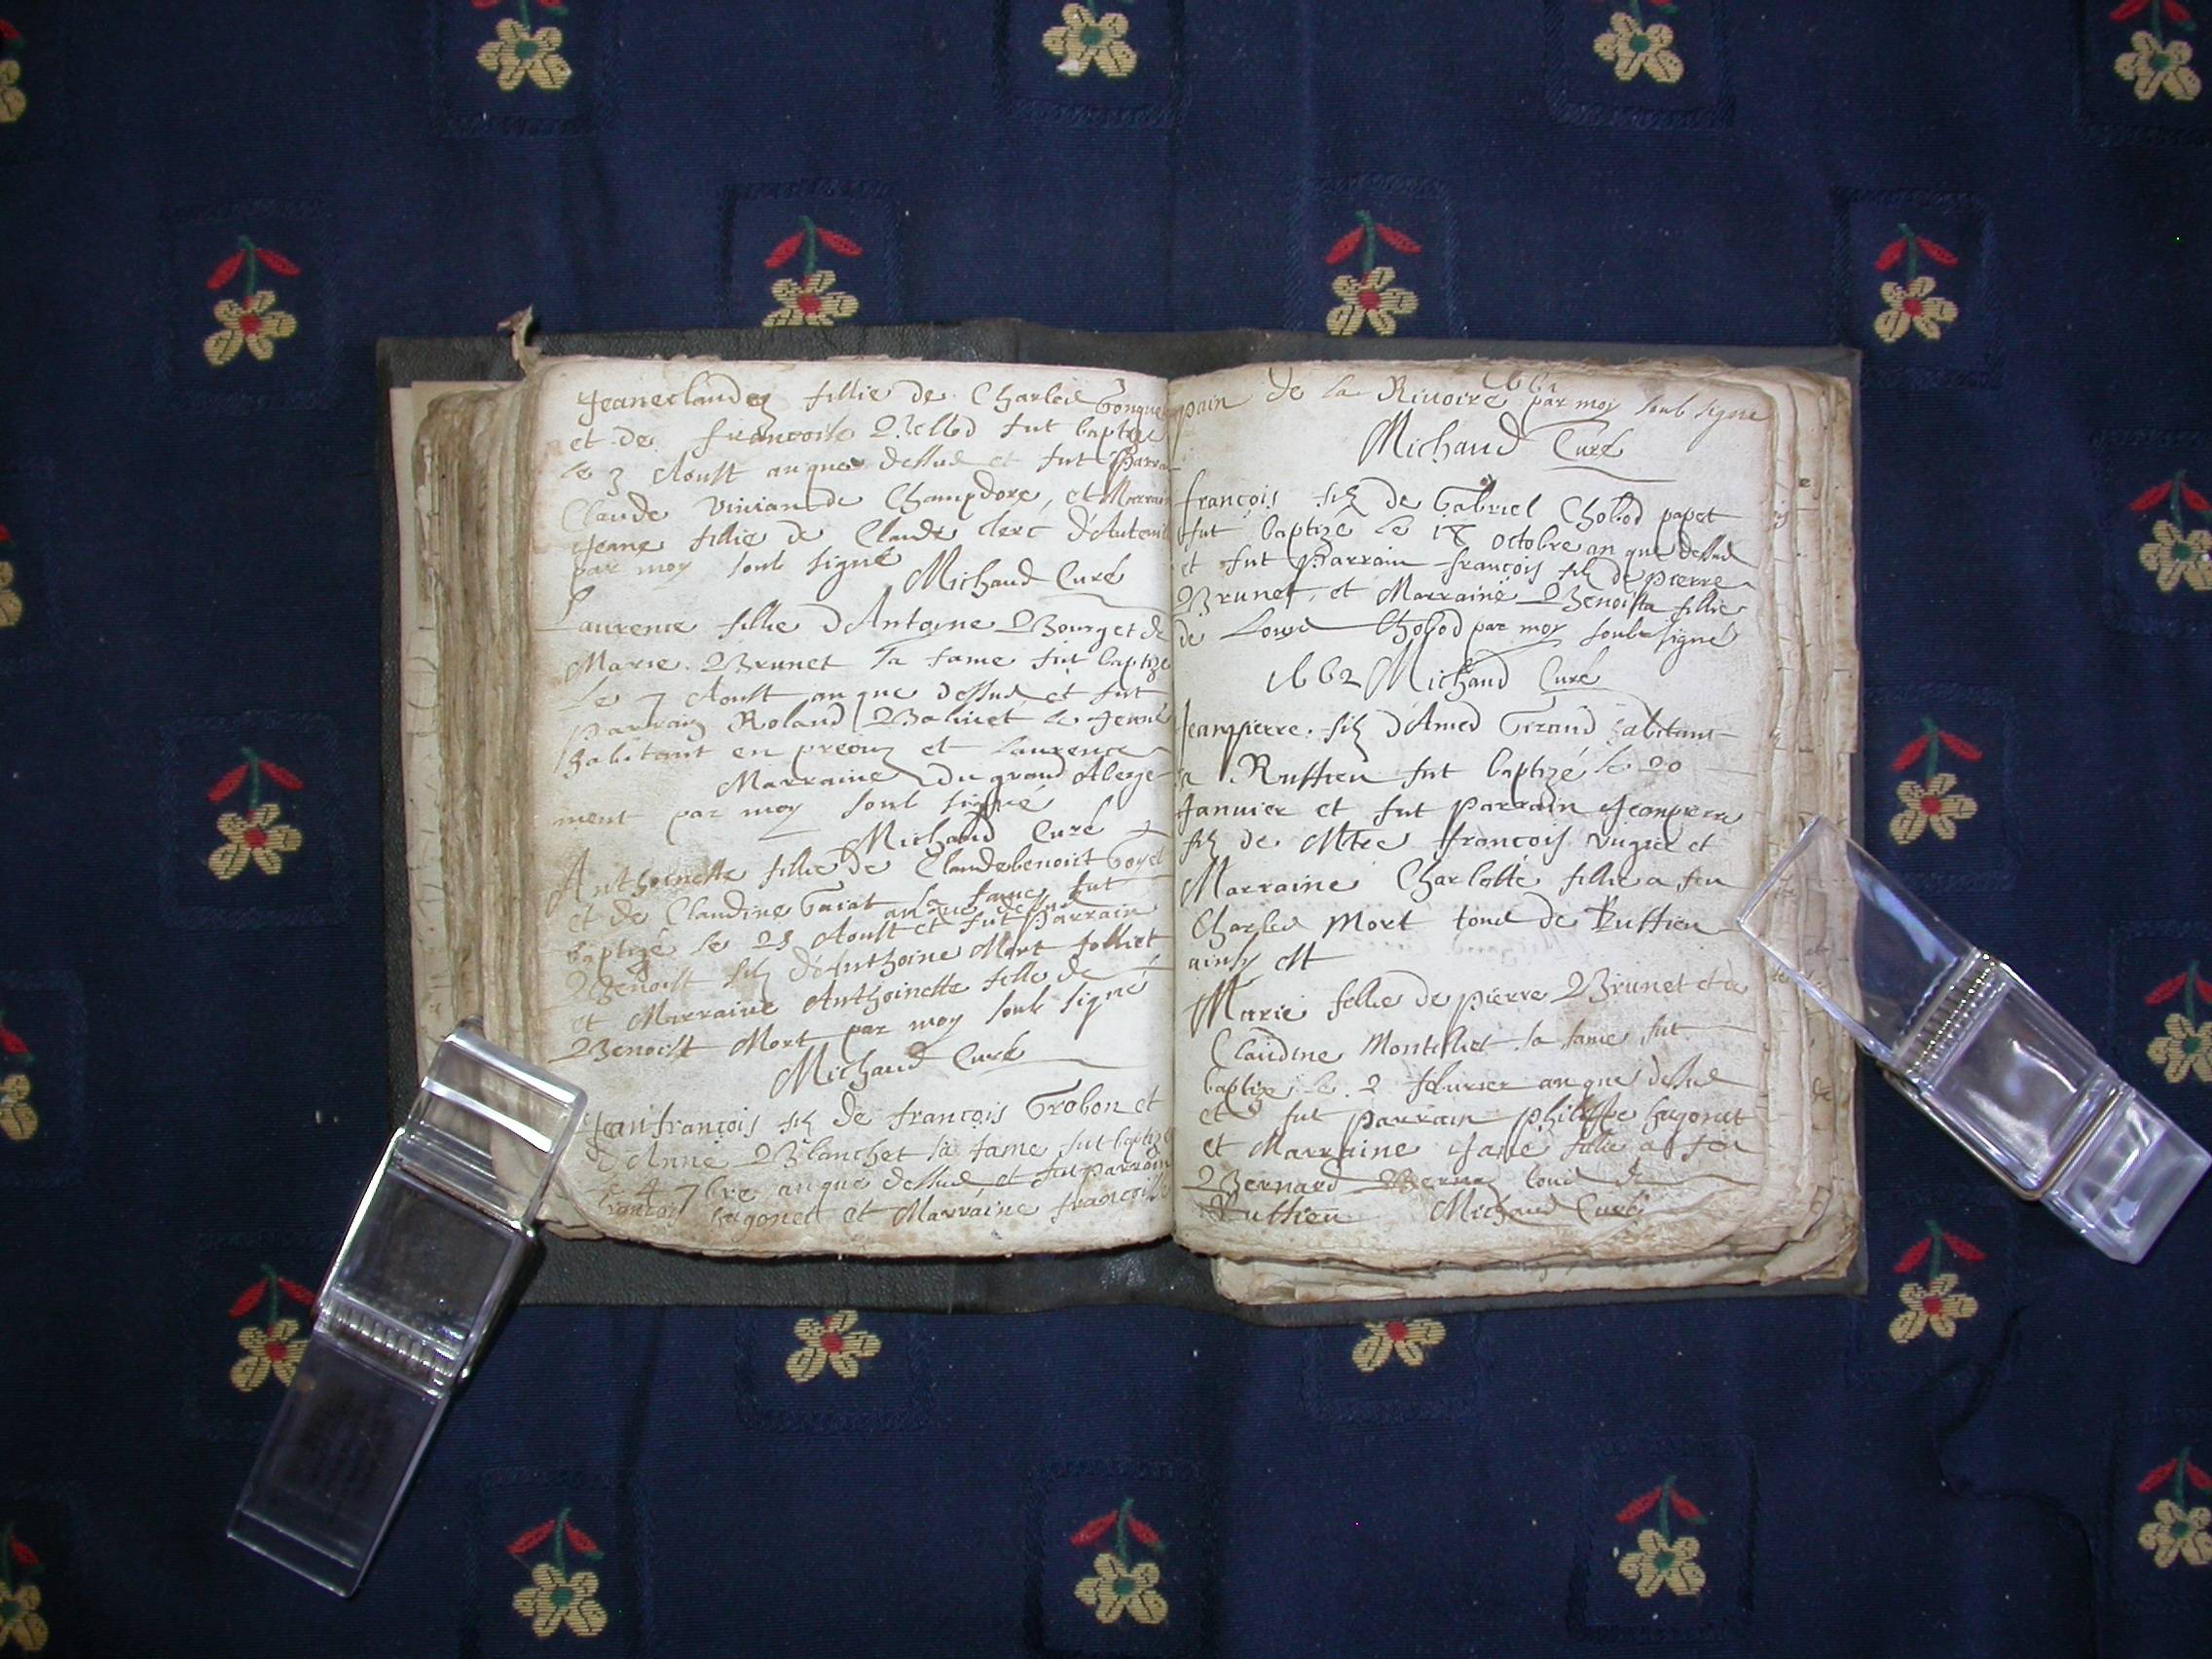 Jeaneclauden fillie de Charles
et de francoise fut baptizé
le 3 Aoust an que dessus et fut Parra
Claude Vivian de Champdore, et Marrain
Jeane fillie de Claude Clerc d'
par moy soub signé
Michaud Curé
Laurence fillie d'Antoine Bourget de
Marie Brunet sa fame fut baptizé
le 7 Aoust an que dessus et fut
parrain Roland le Jeune
habitant en et Laurence
Marraine du grand Aberge-
ment par moy soub signé
Michaud Curé
Anthoinette fillie de Claudebenoist Goyet
et de Claudine sa fame fut
an que dessus
baptizé le 23 Aoust et fut Parrain
Benoist filz d'Anthoine Mort Jolliet
et Marraine Anthoinette fillie de
Benoist Mort par moy soub signé
Michaud Curé
Jeanfrançois filz de françois Grobon et
d'Anne Blanchet sa fame fut baptizé
le 4 7bre an que dessus et fut parrain
francois hugonet et Marraine francoise
1661
pain de la Rivoire par moy soub signe
Michaud Curé
françois filz de Gabriel Chobod papet
fut baptizé le 18 octobre an que dessus
et fut Parrain françois filz de pierre
Brunet, et Marraine Benoista fillie
de Louis Chobod par moy soub signé
1662 Michaud Curé
Jeanpierre filz d'Amed Girand habitant
a Ruffieu fut baptizé le 20
Januier et fut parrain Jeanpierre
filz de Mtre françois et
Marraine Charlotte fillie a feu
Charles Mort tous de Ruffieu
ainsy est
Marie fillie de pierre Brunet et de
Claudine Montillet sa fame fut
baptize le 2 feburier an que dessus
et fut parrain philippe hugonet
et Marraine Jane fillie a feu
Bernard tous de
Ruffieu Michaud Curé